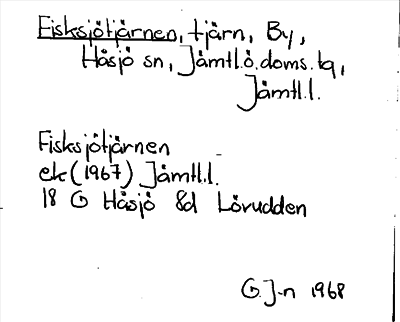 Fisksjötjärnen, tjärn, By,
Håsjö sn, Jämtl.ö.doms.tq,
Jämtl.l.
Fisksjötjärnen
ek (1967) Jämtl.l.
18 G Håsjö 8d Lövudden
G.J-n 1968